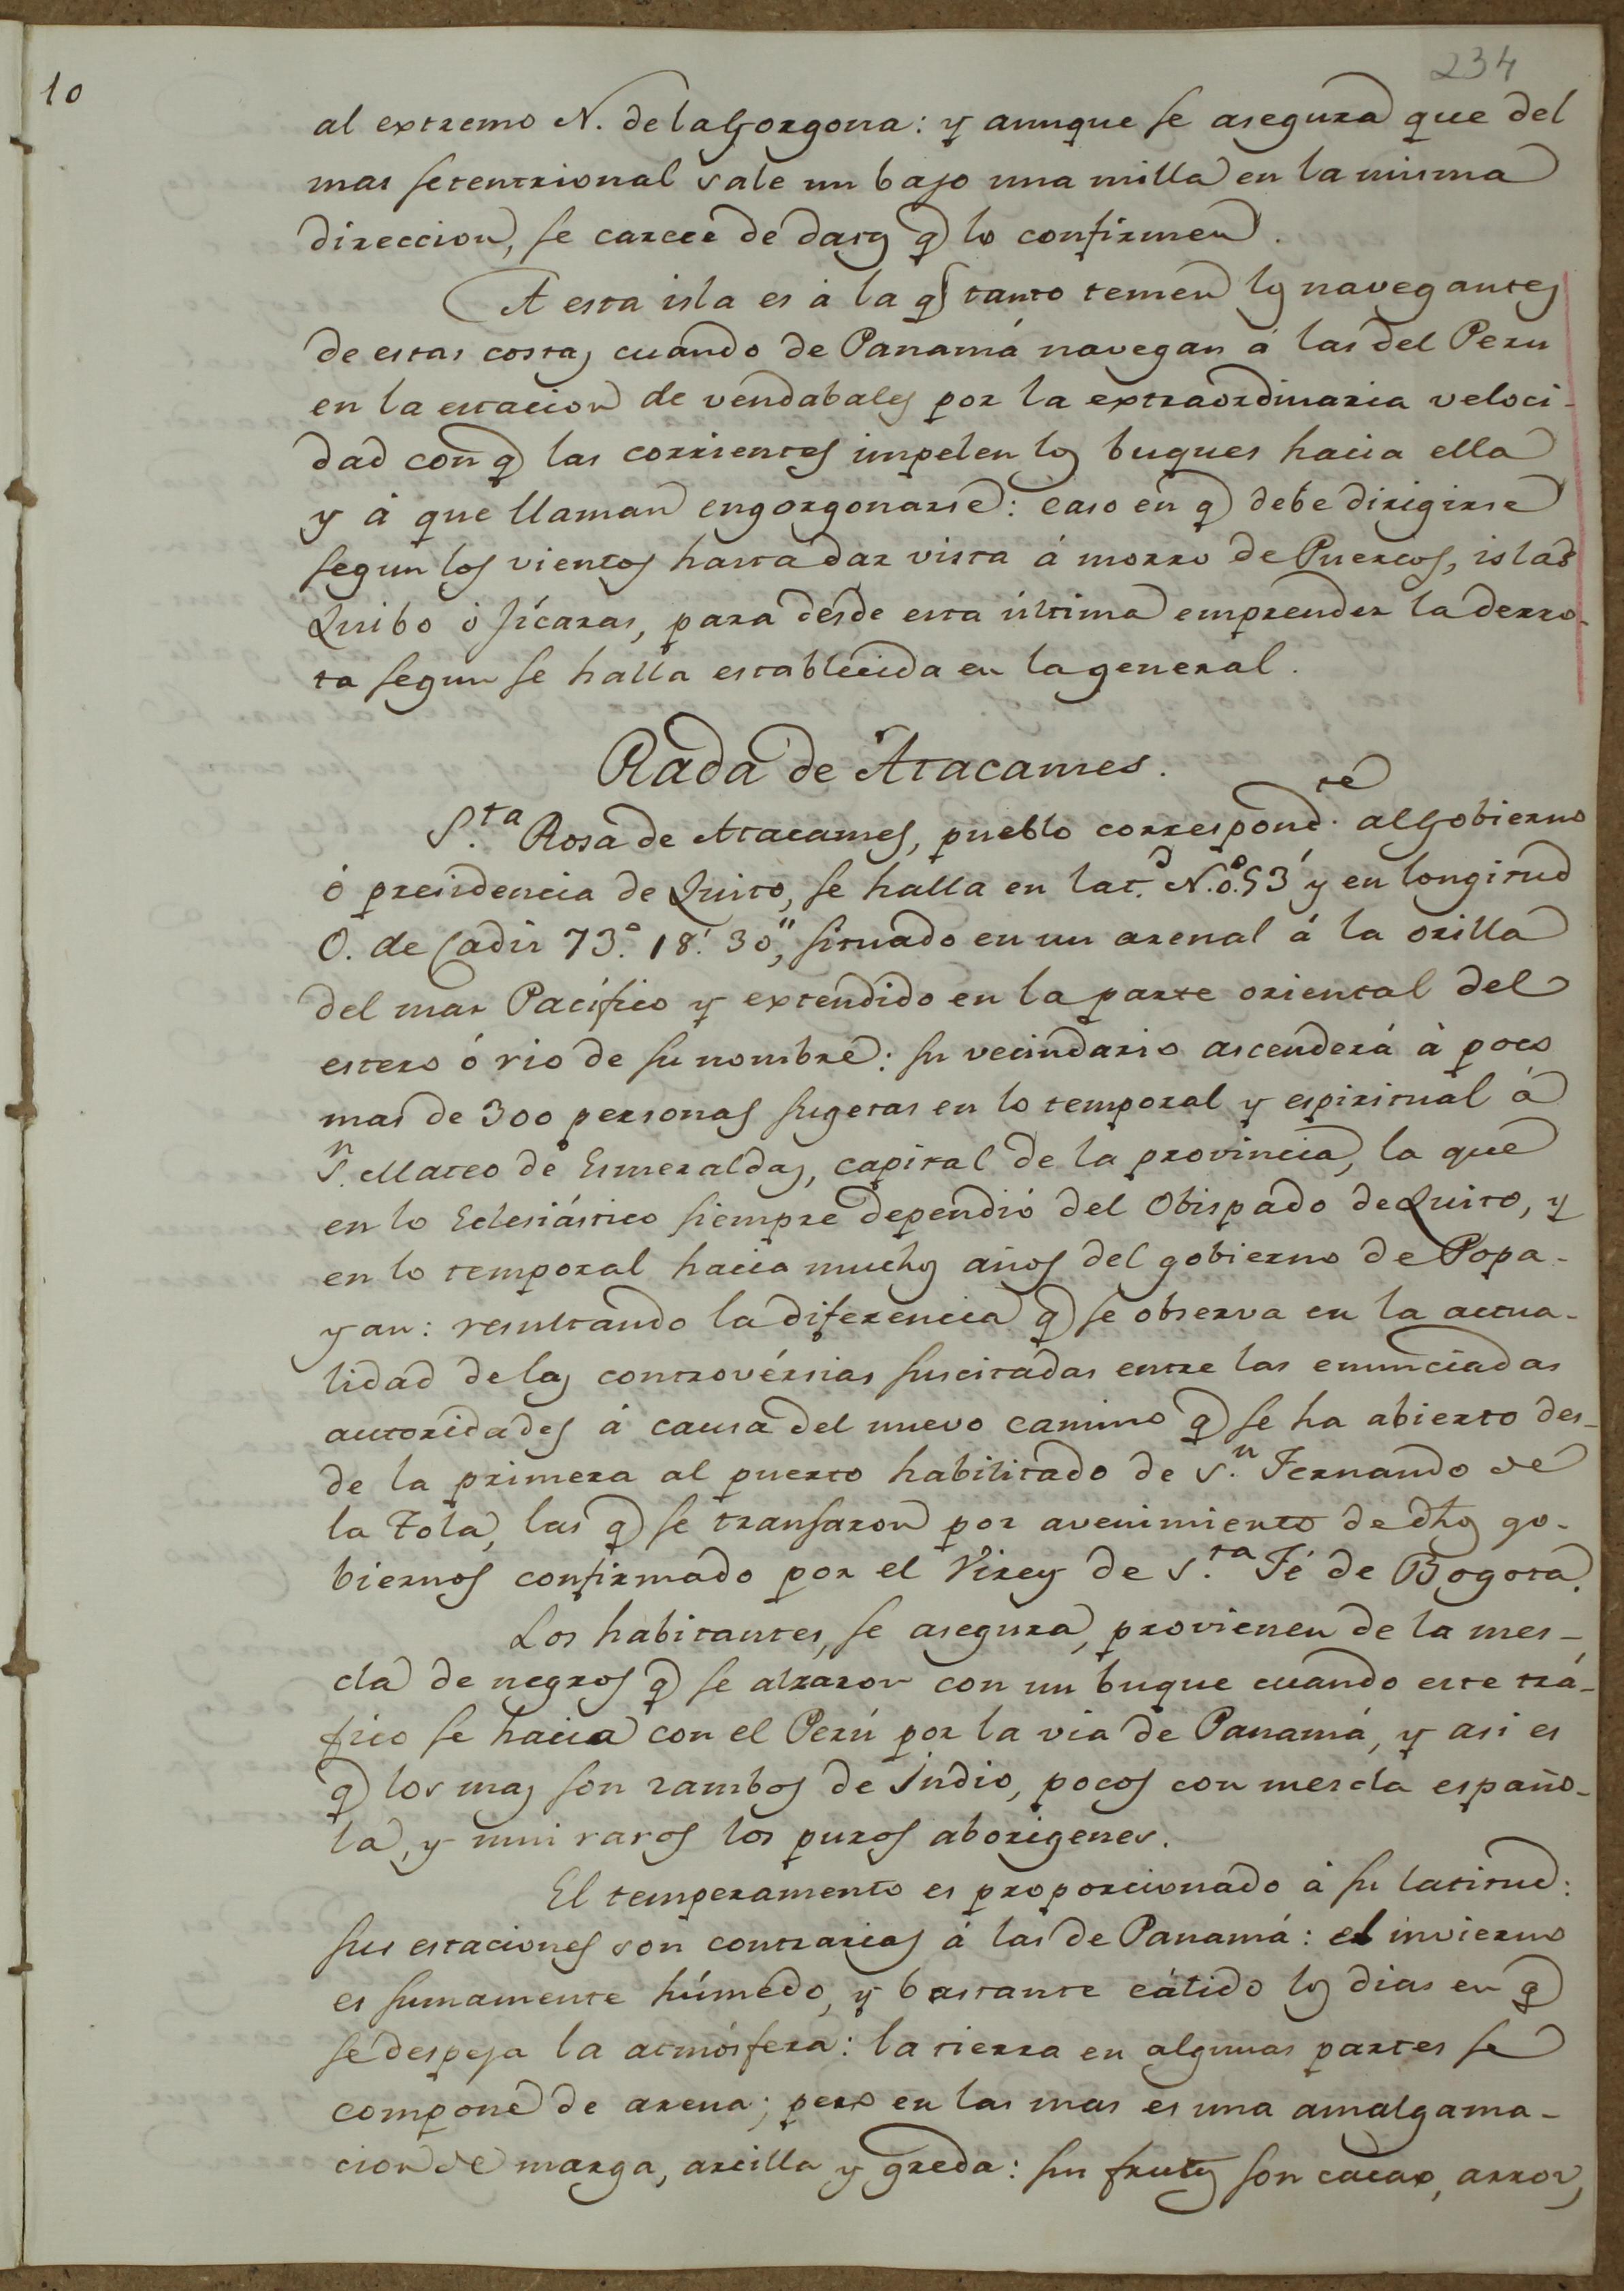 234
10
al extremo N. de la Gorgona: y aunque se asegura que del
mas setentrional sale un bajo una milla en la misma
direccion, se carece de datos q lo confirmen.
A esta isla es á la q tanto temen los navegantes
de estas costas cuando de Panamá navegan á las del Peru
en la estacion de vendabales por la extraordinaria veloci-
dad con q las corrientes impelen los buques hacia ella
y á que llaman engorgonarse: caso en q debe dirigirse
segun los vientos hasta dar vista á morro de Puercos, islas
Quibo ó Jícaras, para desde esta última emprender la derro-
ta segun se halla establecida en la general.
Rada de Atacames.
S.ta Rosa de Atacames, pueblo correspond.te al Gobierno
ó presidencia de Quito, se halla en lat.d N. 0.° 53' y en longitud
O. de Cadis 73.° 18.' 30", situado en un arenal á la orilla
del mar Pacífico y extendido en la parte oriental del
estero ó rio de su nombre: su vecindario ascenderá á poco
mas de 300 personas sugetas en lo temporal y espiritual á
S.n Mateo de Esmeraldas, capital de la provincia, la que
en lo Eclesiástico siempre dependió del Obispado de Quito, y
en lo temporal hacia muchos años del gobierno de Popa-
yan: resultando la diferencia q se observa en la actua-
lidad de las controvérsias suscitadas entre las enunciadas
autoridades á causa del nuevo camino q se ha abierto des-
de la primera al puerto habilitado de S.n Fernando de
la Tola, las q se transaron por avenimiento de dhos go-
biernos confirmado por el Virey de S.ta Fé de Bogota.
Los habitantes, se asegura, provienen de la mes-
cla de negros q se alzaron con un buque cuando este trá-
fico se hacia con el Perú por la via de Panamá, y asi es
q los mas son zambos de Indio, pocos con mescla españo-
la, y mui raros los puros aborigenes.
El temperamento es proporcionado á su latitud:
sus estaciones son contrarias á las de Panamá: el invierno
es sumamente húmedo, y bastante cálido los dias en q
se despeja la atmósfera: la tierra en algunas partes se
compone de arena; pero en las mas es una amalgama-
cion de marga, arcilla y greda: sus frutos son cacao, arroz,